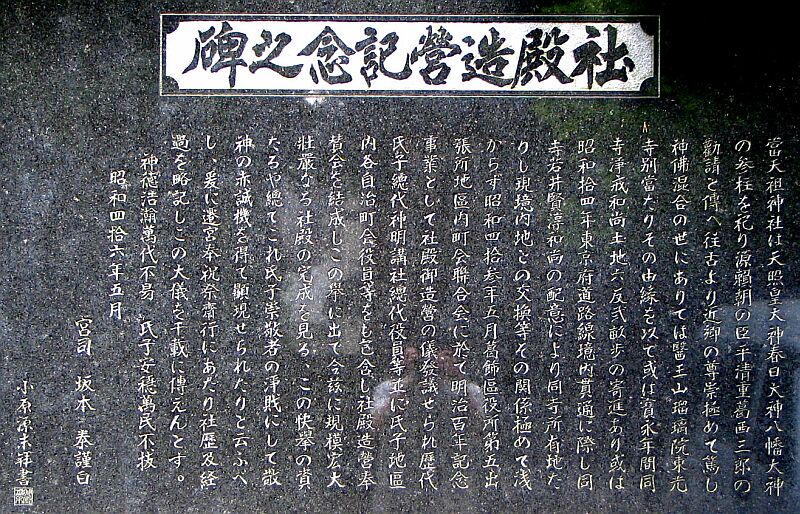 社殿造營記念之碑
當天祖神社は天照皇大神春日大神八幡大神
の参柱を祀り源頼朝の臣平清重葛西三郎の
勧請と傳へ往古より近郷の尊崇極めて篤し
神佛混合の世にありては醫王山瑠璃院東光
寺別當たりその由縁を以て或は寳永年間同
寺淨戒和尚土地六反弐畝歩の寄進あり或は
昭和拾四年東京府道路線境内貫通に際し同
寺若井賢淳和尚の配意により同寺所有地た
りし現境内地との交換等その関係極めて浅
からず昭和四拾参年五月葛飾區役所第五出
張所地區内町会聯合会に於て明治百年記念
事業として社殿御造營の儀發議せられ歴代
氏子總代神明講社總代役員等並に氏子地區
内各自治町会役員等をも包含し社殿造營奉
賛会を結成しこの舉に出て今茲に規模宏大
壮嚴なる社殿の完成を見る、この快擧の資
たるや總てこれ氏子崇敬者の淨財にして敬
神の赤誠機を得て顕現せられたりと云ふべ
し、爰に遷宮奉祝祭齋行にあたり社歴及経
過を略記しこの大儀を千載に傳えんとす。
神徳浩瀚萬代不易　氏子安穏萬民不抜
昭和四拾六年五月
宮司　坂本　泰謹白
小原源末祥書